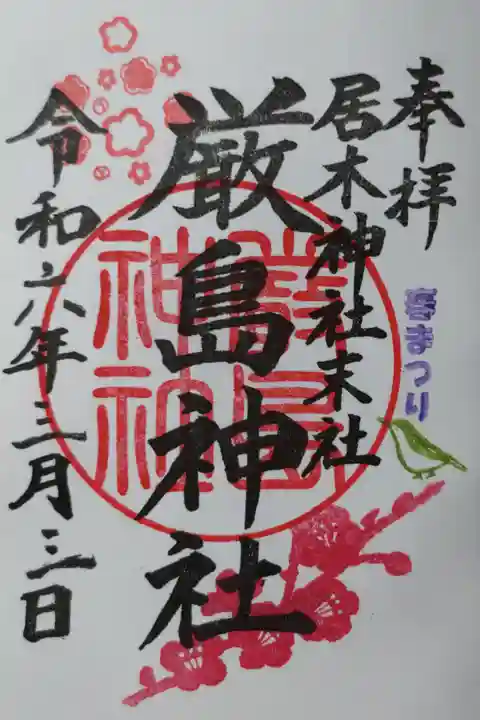 奉拝
居木神社末社
厳島神社
令和六年三月三日
厳島神社